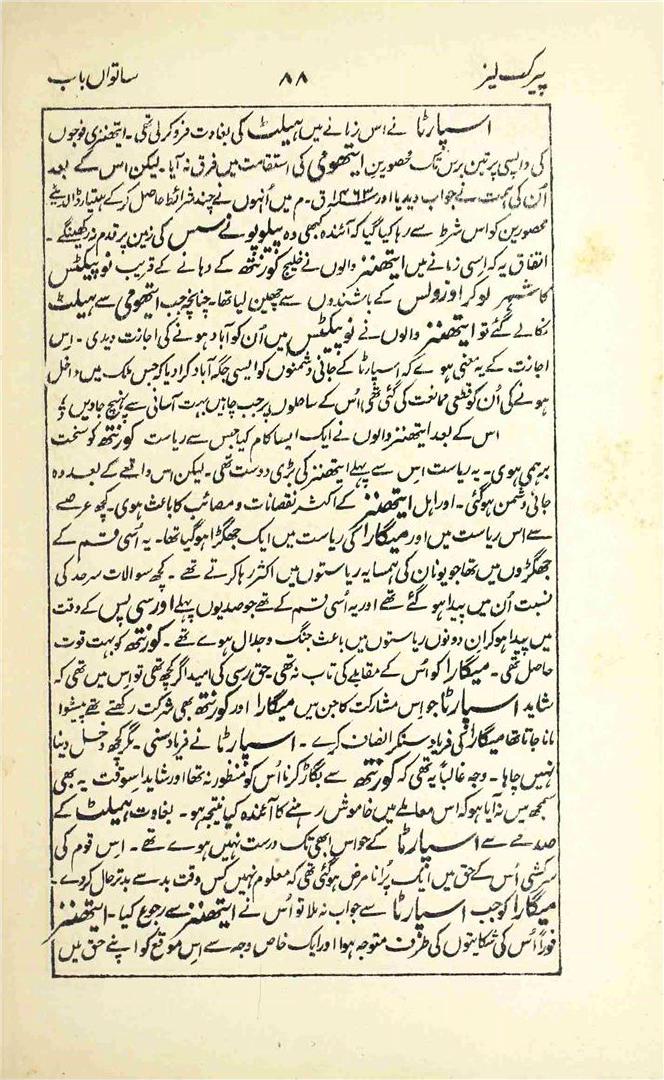 پیرکلیز ۸۸ ساتواں باب
اسپارٹا نے اس زمانے میں ہیلٹ کی بغاوت فرو کر لی تھی۔ ایتھنزی فوجوں
کی واپسی پر تین برس تک محصورین ایتھومی کی استقامت میں فرق نہ آیا۔ لیکن اس کے بعد
اُن کی ہمت نے جواب دیدیا اور ۴۶۳ ق۔م میں اُنہوں نے چند شرائط حاصل کر کے ہتیار ڈالدیئے
محصورین کو اس شرط سے رہا کیا گیا کہ آئندہ کبھی وہ پیلوپونے سس کی زمین پر قدم نہ رکھینگے۔
اتفاق یہ کہ اِسی زمانے میں ایتھنز والوں نے خلیج کورنتھ کے دہانے کے قریب نوپیکٹس
کا شہر لوکر اوزولس کے باشندوں سے چھین لیا تھا۔ چنانچہ جب ایتھومی سے ہیلٹ
نکالے گئے تو ایتھنز والوں نے نوپیکٹس میں اُن کو آباد ہونے کی اجازت دیدی۔ اِس
اجازت کے یہ معنی ہوے کہ اسپارٹا کے جانی دشمنوں کو ایسی جگہ آباد کرا دیا کہ جس ملک میں داخل
ہونے کی اُن کو قطعی ممانعت کی گئی تھی اُس کے ساحلوں پر جب چاہیں بہت آسانی سے پہنچ جاویں
اس کے بعد ایتھنز والوں نے ایک ایسا کام کیا جس سے ریاست کورنتھ کو سخت
برہمی ہوی۔ یہ ریاست اس سے پہلے ایتھنز کی بڑی دوست تھی۔ لیکن اس واقعے کے بعد وہ
جانی دشمن ہوگئی۔ اور اہل ایتھنز کے اکثر نقصانات و مصائب کا باعث ہوی۔ کچھ عرصے
سے اس ریاست میں اور میگارا کی ریاست میں ایک جھگڑا ہوگیا تھا۔ یہ اُسی قسم کے
جھگڑوں میں تھا جو یونان کی ہمسایہ ریاستوں میں اکثر رہا کرتے تھے۔ کچھ سوالات سرحد کی
نسبت اُن میں پیدا ہو گئے تھے اور یہ اُسی قسم کے تھے جو صدیوں پہلے اورسی پس کے وقت
میں پیدا ہو کر ان دونوں ریاستوں میں باعث جنگ و جدال ہوے تھے۔ کورنتھ کو بہت قوت
حاصل تھی۔ میگارا کو اُس کے مقابلے کی تاب نہ تھی۔ حق رسی کی امید اگر کچھ تھی تو اِس میں تھی کہ
شاید اسپارٹا جو اِس مشارکت کا جن میں میگارا اور کورنتھ بھی شرکت رکھتے تھے پیشوا
مانا جاتا تھا میگارا کی فریاد سنکر انصاف کرے۔ اسپارٹا نے فریاد سنی۔ مگر کچھ دخل دینا
نہیں چاہا۔ وجہ غالباً یہ تھی کہ کورنتھ سے بگاڑ کرنا اُس کو منظور نہ تھا اور شاید اسوقت یہ بھی
سمجھ میں نہ آیا ہو کہ اس معاملے میں خاموش رہنے کا آئندہ کیا نتیجہ ہو۔ بغاوت ہیلٹ کے
صدمے سے اسپارٹا کے حواس ابھی تک درست نہیں ہوے تھے۔ اِس قوم کی
سرکشی اُس کے حق میں ایک پُرانا مرض ہوگئی تھی کہ معلوم نہیں کس وقت بد سے بدتر حال کردے۔
میگارا کو جب اسپارٹا سے جواب نہ ملا تو اُس نے ایتھنز سے رجوع کیا۔ ایتھنز
فوراً اُس کی شکایتوں کی طرف متوجہ ہوا اور ایک خاص وجہ سے اِس موقع کو اپنے حق میں